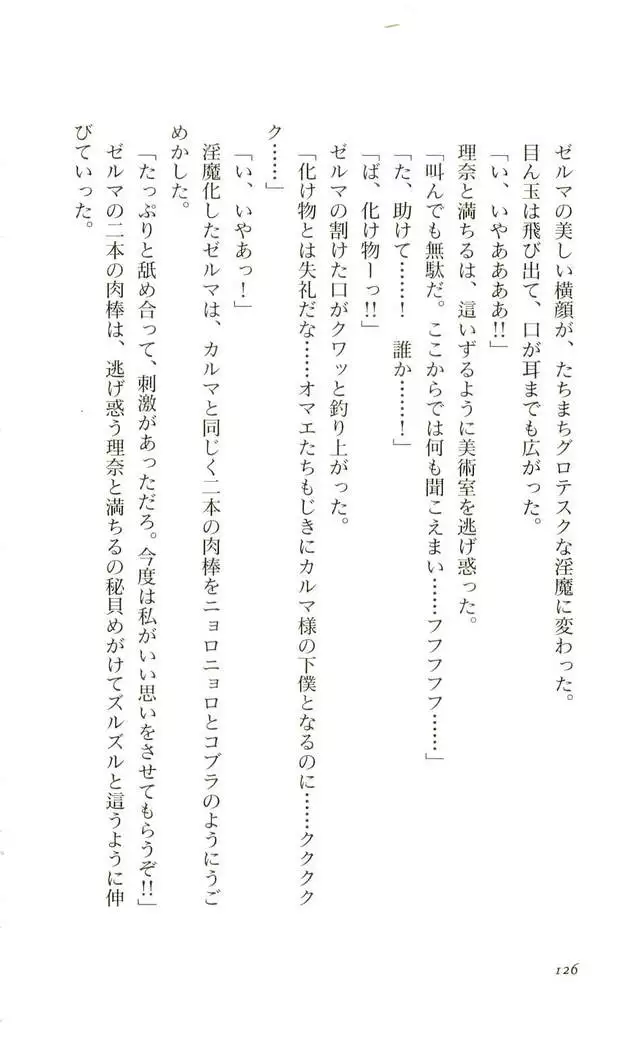 ゼルマの美しい横顔が、たちまちグロテスクな淫魔に変わった。
目ん玉は飛び出て、口が耳までも広がった。
「い、いやああああ!!」
理奈と満ちるは、這いずるように美術室を逃げ惑った。
「叫んでも無駄だ。ここからでは何も聞こえまい……フフフフフ……」
「た、助けて……！　誰か……！」
「ば、化け物ーっ!!」
ゼルマの割けた口がクワッと釣り上がった。
「化け物とは失礼だな……オマエたちもじきにカルマ様の下僕となるのに……クククク
ク……」
「い、いやあっ！」
淫魔化したゼルマは、カルマと同じく二本の肉棒をニョロニョロとコブラのようにうご
めかした。
「たっぷりと舐め合って、刺激があっただろ。今度は私がいい思いをさせてもらうぞ!!」
ゼルマの二本の肉棒は、逃げ惑う理奈と満ちるの秘貝めがけてズルズルと這うように伸
びていった。
126